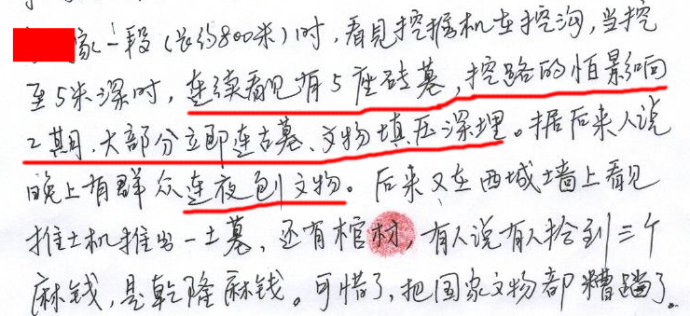 家一段（长约800米）时，看见挖掘机在挖沟，当挖
至5米深时，连续看见有5座砖墓，挖路的怕影响
工期、大部分立即连古墓、文物填压深埋。据后来人说
晚上有群众连夜刨文物。后来又在西城墙上看见
推土机推出一土墓，还有棺材，有人说有人捡到三个
麻钱，是乾隆麻钱。可惜了，把国家文物都糟蹋了。